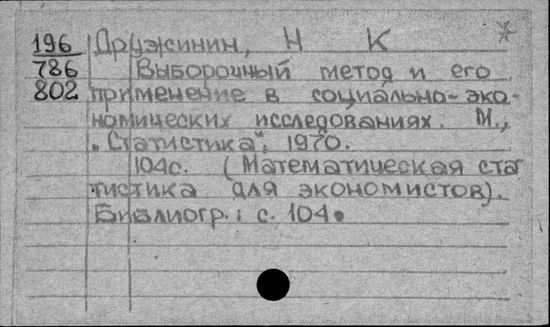 196 Дружинин, Н К *
786 Выборочный метод и его
802 применение в социально-эко-
номических исследованиях. М.,
„Статистика", 1970.
104с. (Математическая ста
тистика для экономистов).
Библиогр.: с. 104.